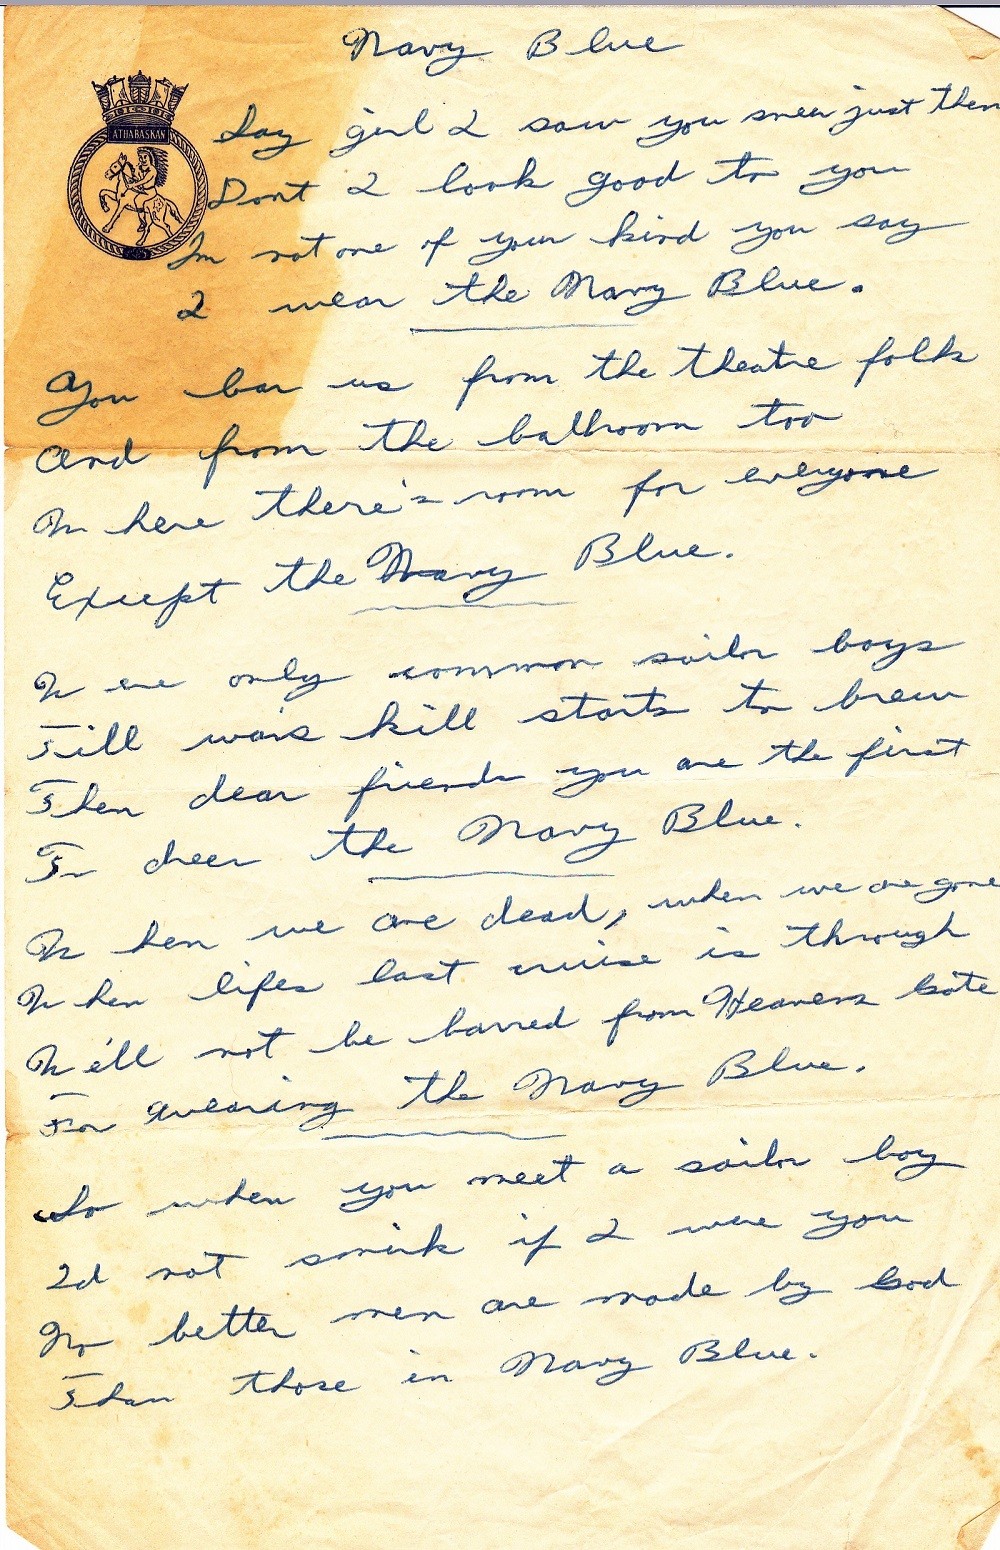 Navy Blue
ATHABASKAN
Say girl I saw you sneer just then
Dont I look good to you
Im not one of your kind you say
I wear the Navy Blue.
You bar us from the theatre folk
And from the ballroom too
Where there's room for everyone
Except the Navy Blue.
We are only common sailor boys
Till wars kill starts to brew
Then dear friends you are the first
To cheer the Navy Blue.
When we are dead, when we are gone
When lifes last cruise is through
We'll not be barred from Heavens Gate
For wearing the Navy Blue.
So when you meet a sailor boy
Id not smirk if I were you
No better men are made by God
Than those in Navy Blue.